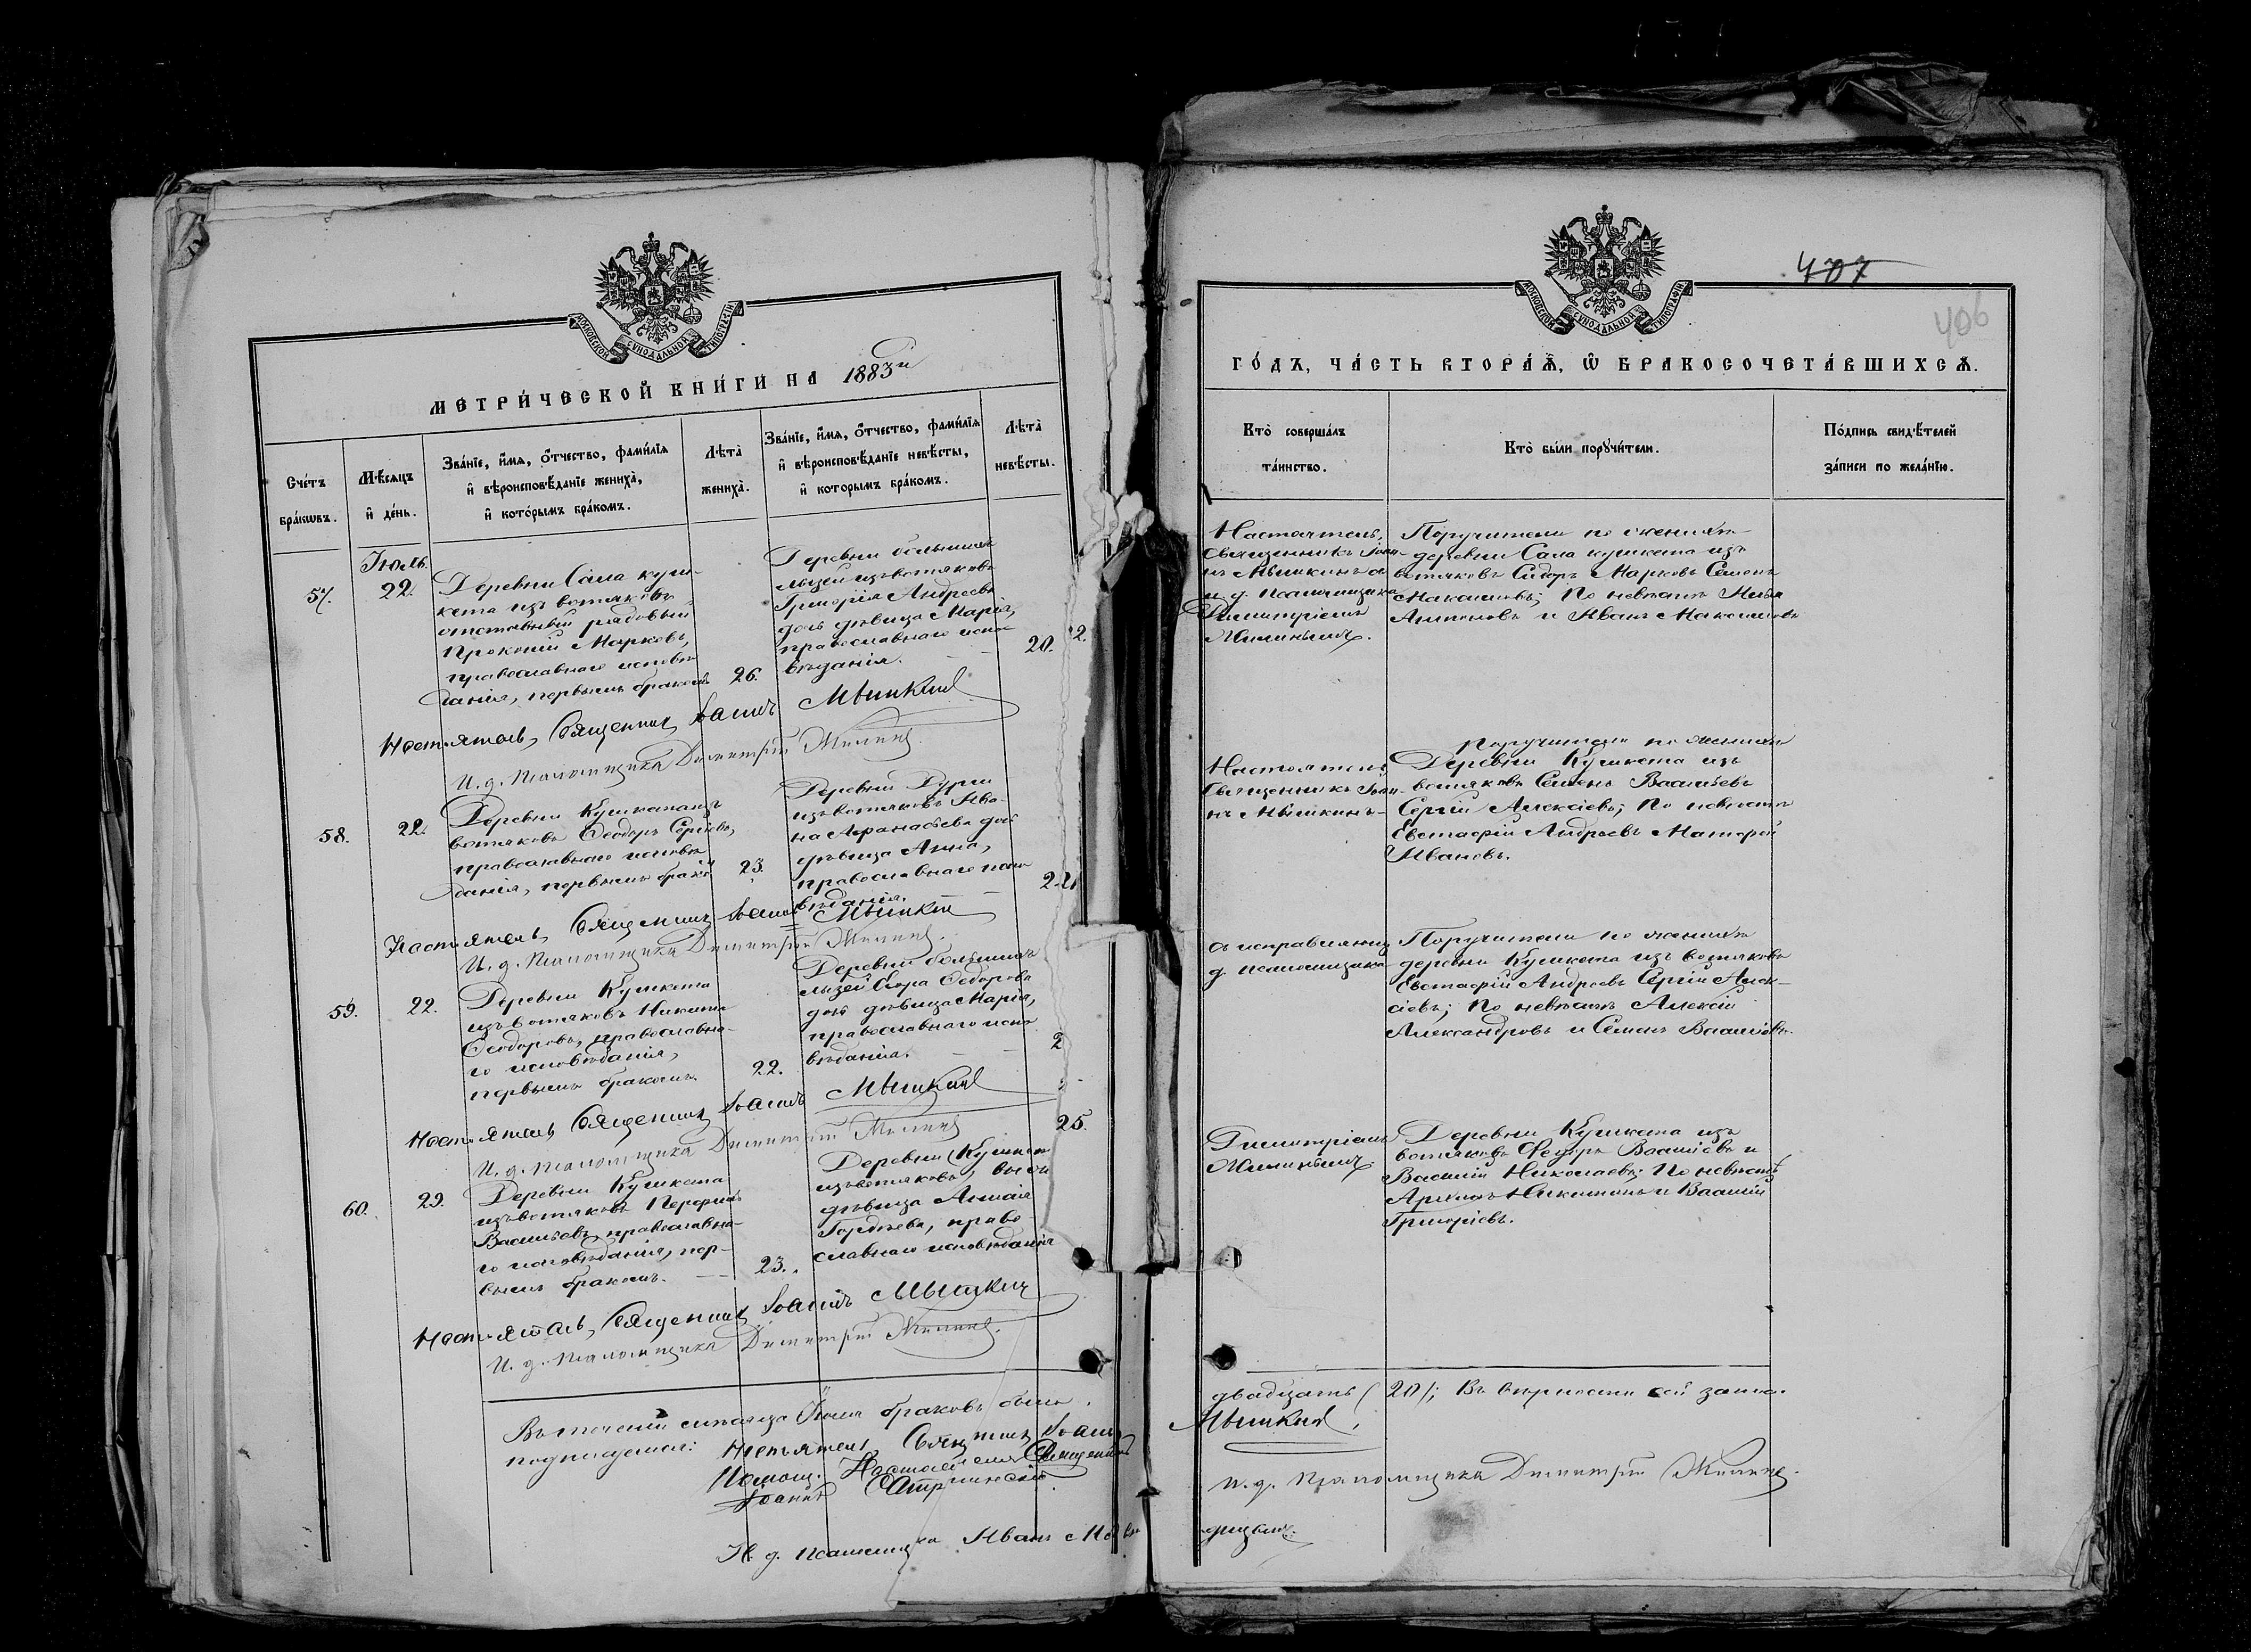 МОСКОВСКОЙ СУНОДАЛЬНОЙ ТИПОГРАФІИ
МЕТРИ́ЧЕСКОЙ КНИ́ГИ НА 1883й
Сче́тъ бра́кѡвъ.
Мѣ́сяцъ и҆ де́нь.
Зва́нїе, и҆́мѧ, ѻ҆́тчество, фами́лїѧ
и҆ вѣроисповѣ́данїе жениха̀,
и҆ кото́рымъ бра́комъ.
Лѣта̀
жениха̀.
Зва́нїе, и҆́мѧ, ѻ҆́тчество, фами́лїѧ
и҆ вѣроисповѣ́данїе невѣ́сты,
и҆ которымъ бра́комъ.
Лѣта̀
невѣ́сты.
Іюль.
57.
22.
Деревни Сала куш-
кета изъ вотяковъ
отставный рядовый
Прокопій Марковъ,
православнаго исповѣ
данія, первымъ бракомъ
26.
Деревни большихъ
лызей изъ вотяковъ
Григорія Андреева
дочь дѣвица Марія,
православнаго испо
вѣданія.
20.
Настоятель, Священникъ Іоаннъ Мышкинъ
И. д. Псаломщика Димитрій Жилинъ.
58.
22.
Деревни Кушкета изъ
вотяковъ Ѳеодоръ Сергѣевъ,
православнаго исповѣ
данія, первымъ брако
23.
Деревни Дурги
изъ вотяковъ Ива-
на Афанасьева дочь
дѣвица Анна,
православнаго испо
вѣданія.
Настоятель, Священникъ Іоаннъ Мышкинъ
И. д. Псаломщика Димитрій Жилинъ.
59.
22.
Деревни Кушкета
изъ вотяковъ Никита
Ѳеодоровъ, православна-
го исповѣданія,
первымъ бракомъ.
22.
Деревни большихъ
лызей Егора Ѳедорова
дочь дѣвица Марія,
православнаго испо
вѣданія.
2
Настоятель, Священникъ Іоаннъ Мышкинъ
И. д. Псаломщика Димитрій Жилинъ
60.
29.
Деревни Кушкета
изъ вотяковъ
Васильевъ, православна-
го исповѣданія, пер-
вымъ бракомъ.
23.
Деревни Кушкета
изъ вотяковъ,
дѣвица
Гордѣева, право
славнаго исповѣданія
25.
Настоятель, Священникъ Іоаннъ Мышкинъ
И. д. Псаломщика Димитрій Жилинъ.
Въ теченіи мѣсяца Іюля браковъ было
подписуемся: Настоятель, Священникъ Іоаннъ
Помощ. Настоятеля Священникъ
Іоаннъ
И. д. псаломщика Иванъ
407
406
МОСКОВСКОЙ СУНОДАЛЬНОЙ ТИПОГРАФІИ
ГО́ДЪ, ЧА́СТЬ ВТОРА́Ѧ, Ѡ҆ БРАКОСОЧЕТА́ВШИХСѦ.
Кто̀ соверша́лъ
та́инство.
Кто̀ бы́ли порꙋчи́тели.
По́дпись свидѣ́телей
за́писи по жела́нїю.
Настоятель,
Священникъ Іоан-
нъ Мышкинъ съ
и. д. псаломщика
Димитріемъ
Жилинымъ.
Поручители по женихѣ
деревни Сала кушкета изъ
вотяковъ Сидоръ Марковъ Семенъ
Максимовъ; По невѣстѣ
Антоновъ и Иванъ Максимовъ
Настоятель
Священникъ Іоан-
нъ Мышкинъ-
Поручители по женихѣ
Деревни Кушкета изъ
вотяковъ Семенъ Васильевъ
Сергій Алексіевъ; По невѣстѣ
Евстафій Андреевъ Матфей
Ивановъ.
съ исправляющ
д. псаломщика
Поручители по женихѣ
деревни Кушкета изъ вотяковъ
Евстафій Андреевъ Сергій Алек-
сіевъ; По невѣстѣ Алексій
Александровъ и Семенъ Васильевъ.
Димитріемъ
Жилинымъ.
Деревни Кушкета изъ
вотяковъ Ѳедоръ Васильевъ и
Василій Николаевъ; По невѣстѣ
Никитинъ и Василій
Григорьевъ.
двадцать (20); Въ вѣрности сей запи-
Мышкинъ,
и. д. Псаломщика Димитрій Жилинъ.